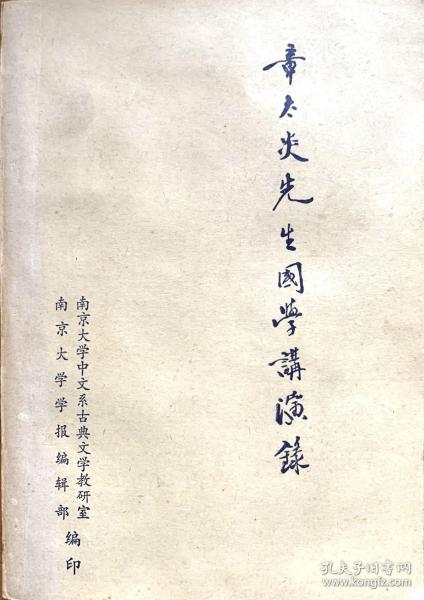 章太炎先生國學講演錄
南京大学中文系古典文学教研室
南京大学学报编辑部
编印
孔夫子旧书网
www.kongfz.com